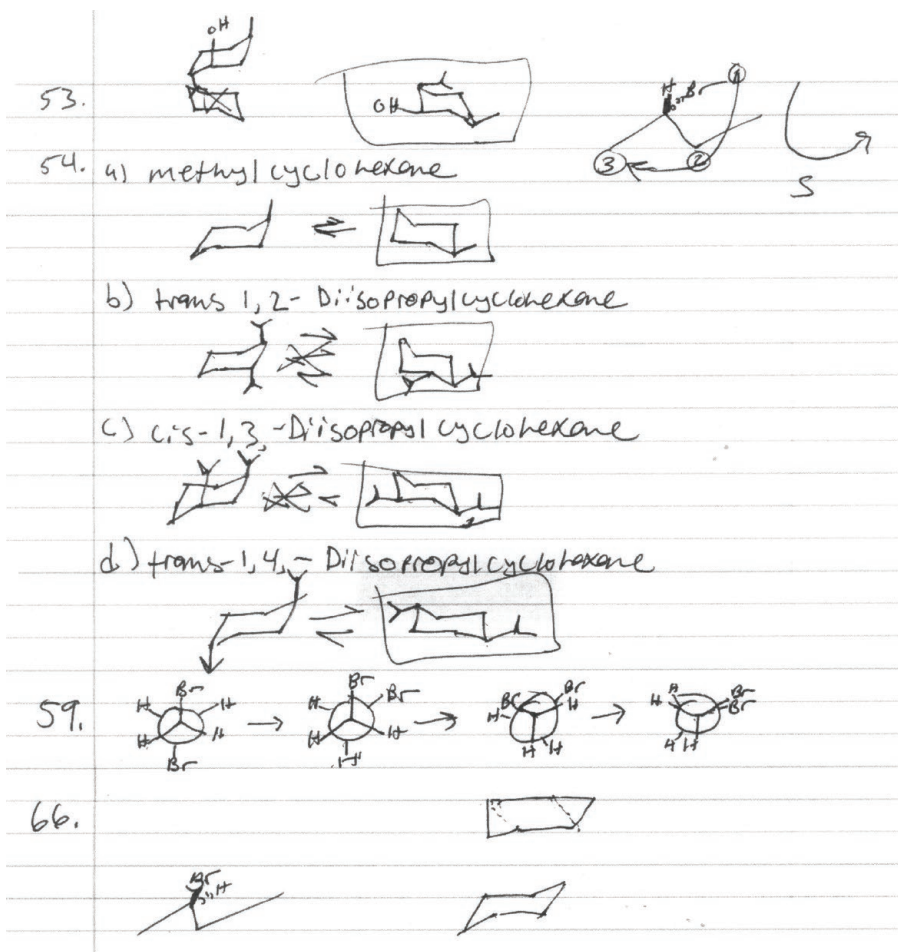 OH
53. OH H Br 1
3 2
S
54. a) methylcyclohexane
b) trans 1,2- Diisopropylcyclohexane
c) cis-1,3,-Diisopropylcyclohexane
d.) trans-1,4,- Diisopropylcyclohexane
Br Br Br Br Br
H H H Br H H H Br
59.
H H H H H H H H
Br H
66.
Br
H